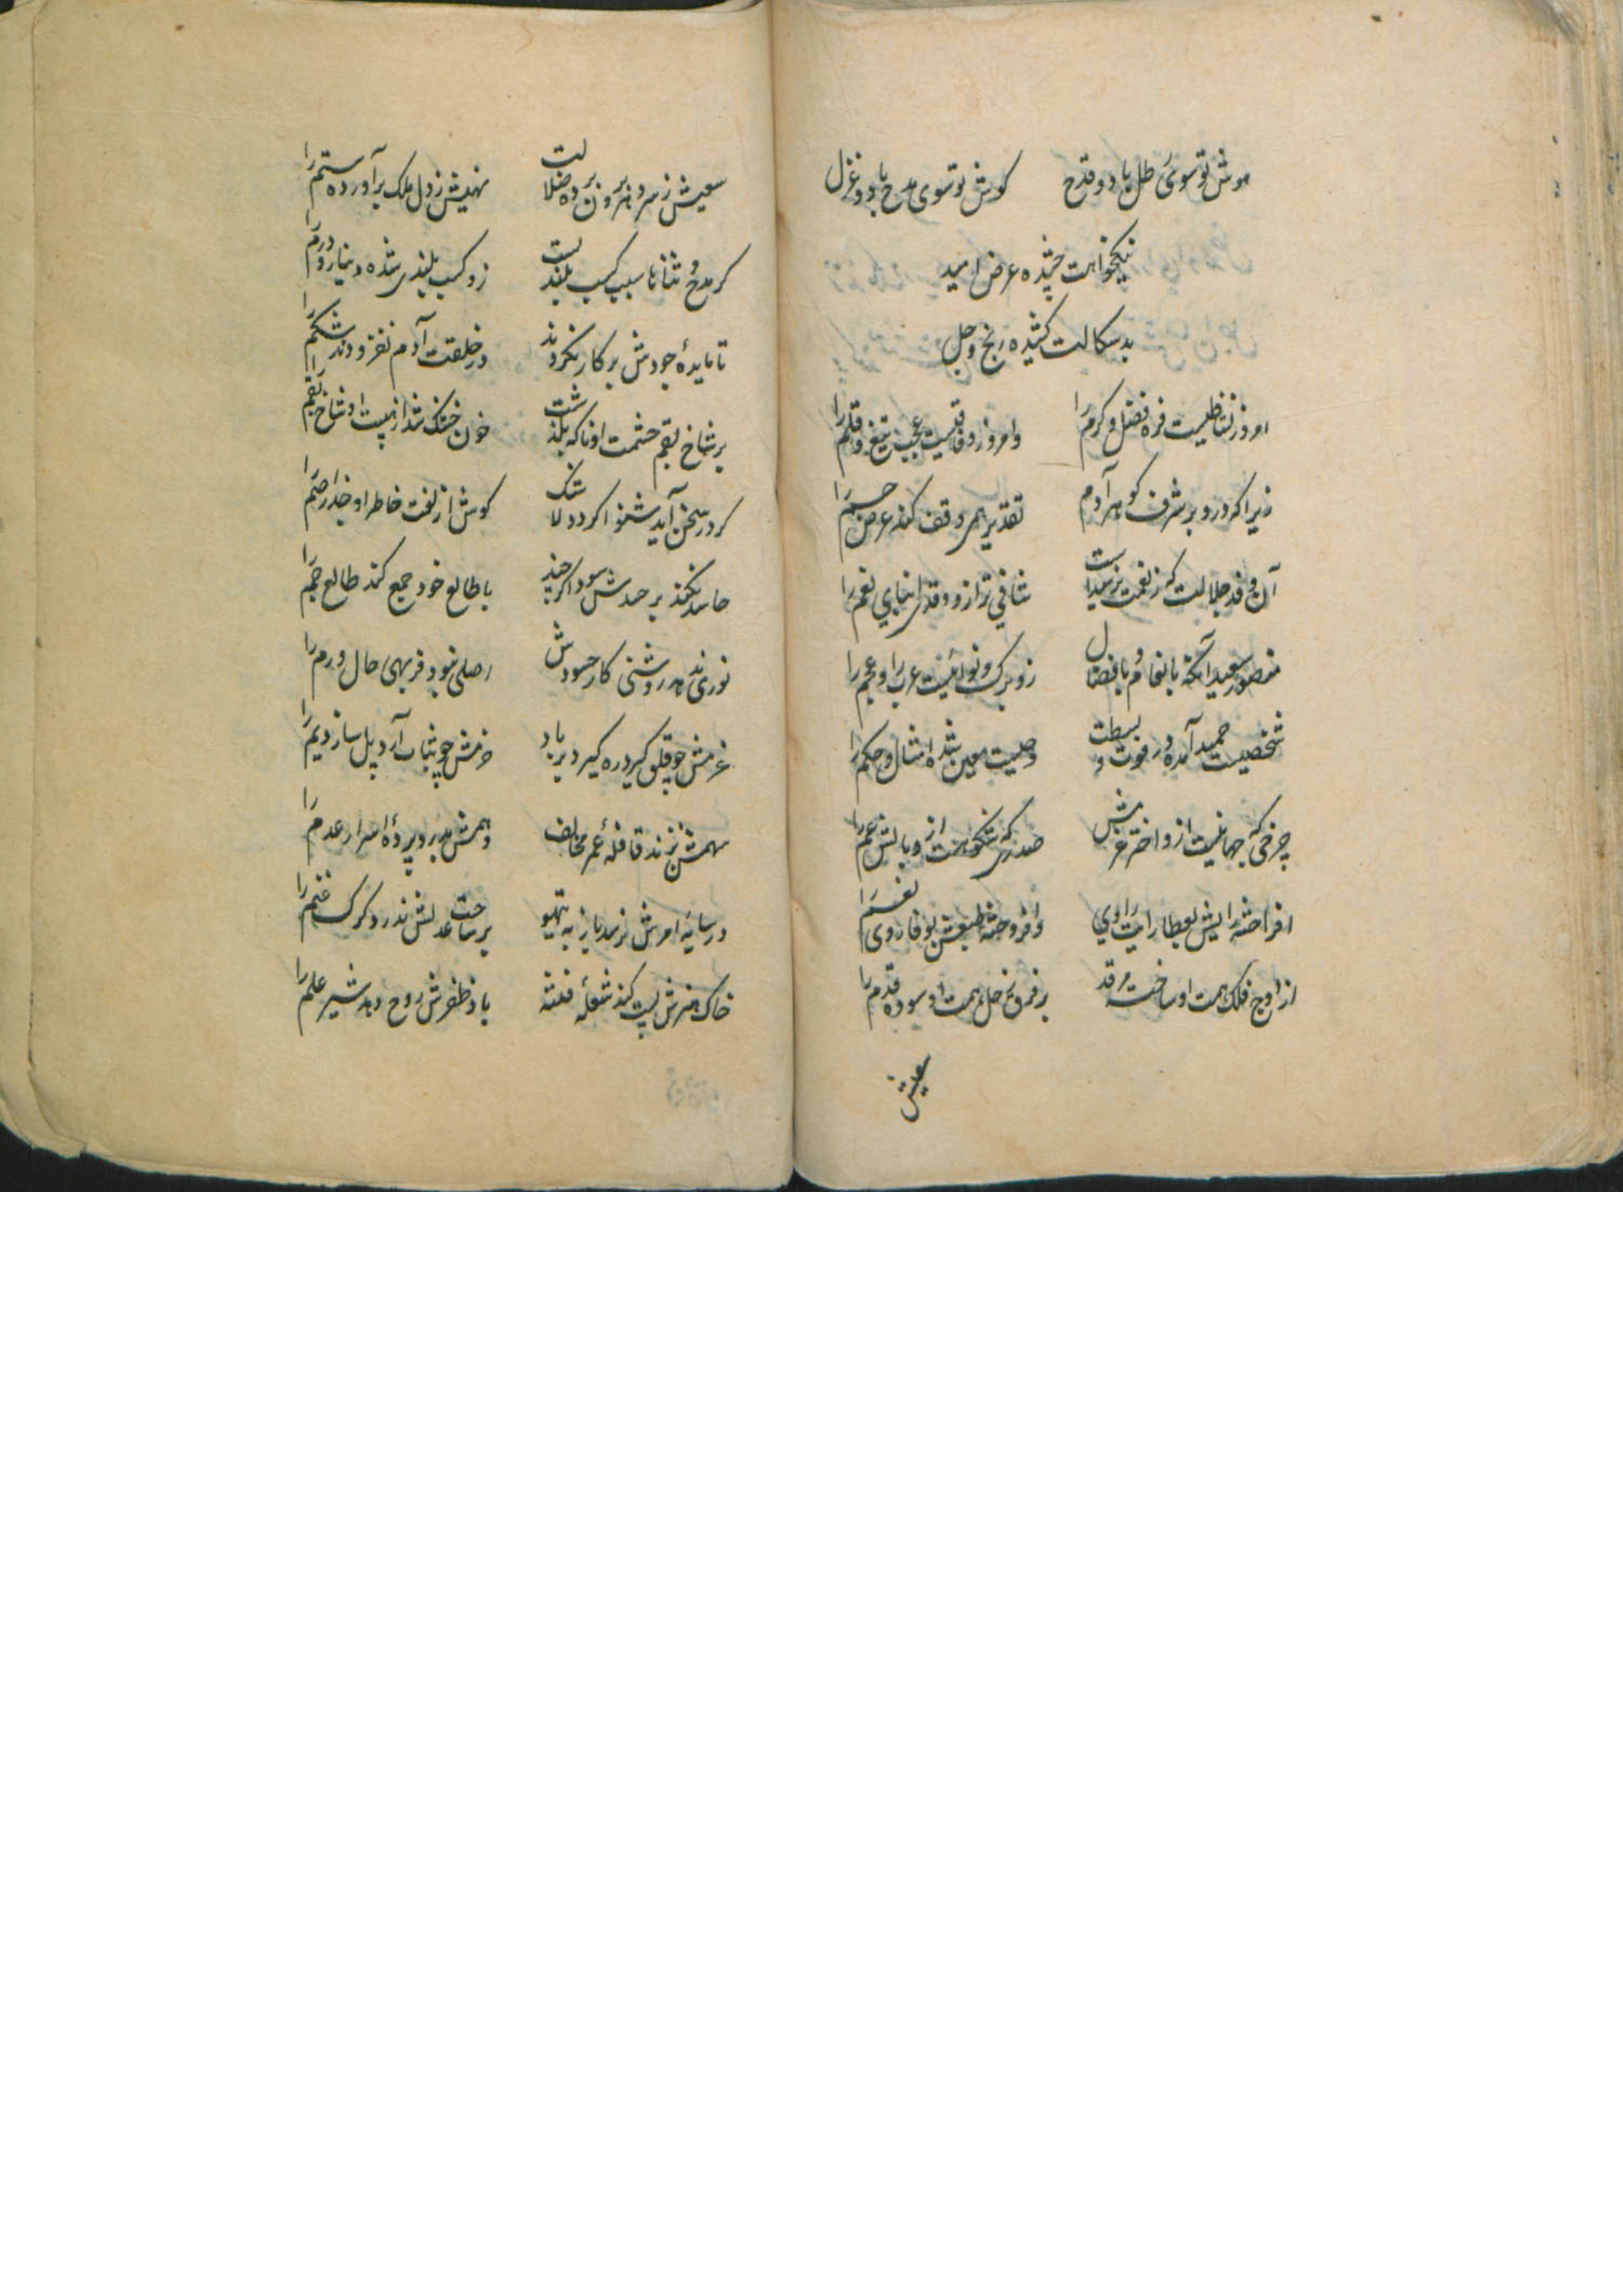 هوش تو سوی رطل باد و قدح گوش تو سوی مدح باد و غزل
نیکخواهت چشیده عرض امید
بدسکالت کشیده رنج وجل
امروز نشاطیست فره فضل و کرم را وامروز وفاقیست عجب تیغ و قلم را
زیرا که درو بر شرف کوهر آدم تقدیر همی وقف کند عرض حرم را
آن وفد جلالت که ز نعمت نرسیدست
منصور سعید آنکه بانعام و بافضال زو برک و نوائیست عرب را و عجم را
شخصیست حمید آمده در قوت و بسطت وصیت معین شده امثال و حکم را
چرخی که جهانیست ازو اختر عزمش صدری که شکوهست ازو بالش عم را
افراخته رایش بعطا رایت راوی وافروخته طبعش بوفا روی نعم را
از اوج فلک همت او ساخته مرقد بر فرق زحل همت او سوده قدم را
سعیش
سعیش ز سر دهر برون برده ضلالت مهدیش ز دل ملک برآورده ستم را
کر مدح و ثنا را سبب کسب بلندیست زو کسب بلندی شده دینار و درم را
تا مایدهٔ جودش بر کار نکردند در خلقت آدم نفزودند شکم را
بر شاخ بقم حشمت او ناکه بگذشت خون خشک شد از هیبت او شاخ بقم را
کر در سخن آید شنوا کردد لاشک کوش از لغت خاطر او جذر اصم را
حاسد نکند بر حسدش سود اگر چند با طالع خود جمع کند طالع جم را
نوری ندهد روشنی کار حسودش اصلی نبود فربهی حال ورم را
عزمش چو قلق گیرد ره گیرد بر باد حزمش چو ثبات آرد پل سازد یم را
سهمش بزند قافلهٔ عمر مخالف وهمش بدرد پردهٔ اسرار عدم را
در سایه امرش نرسد باز به تیهو بر ساحت عدلش ندرد کرک غنم را
خاک هنرش پست کند شعله فتنه باد ظفرش روح دهد شیر علم را